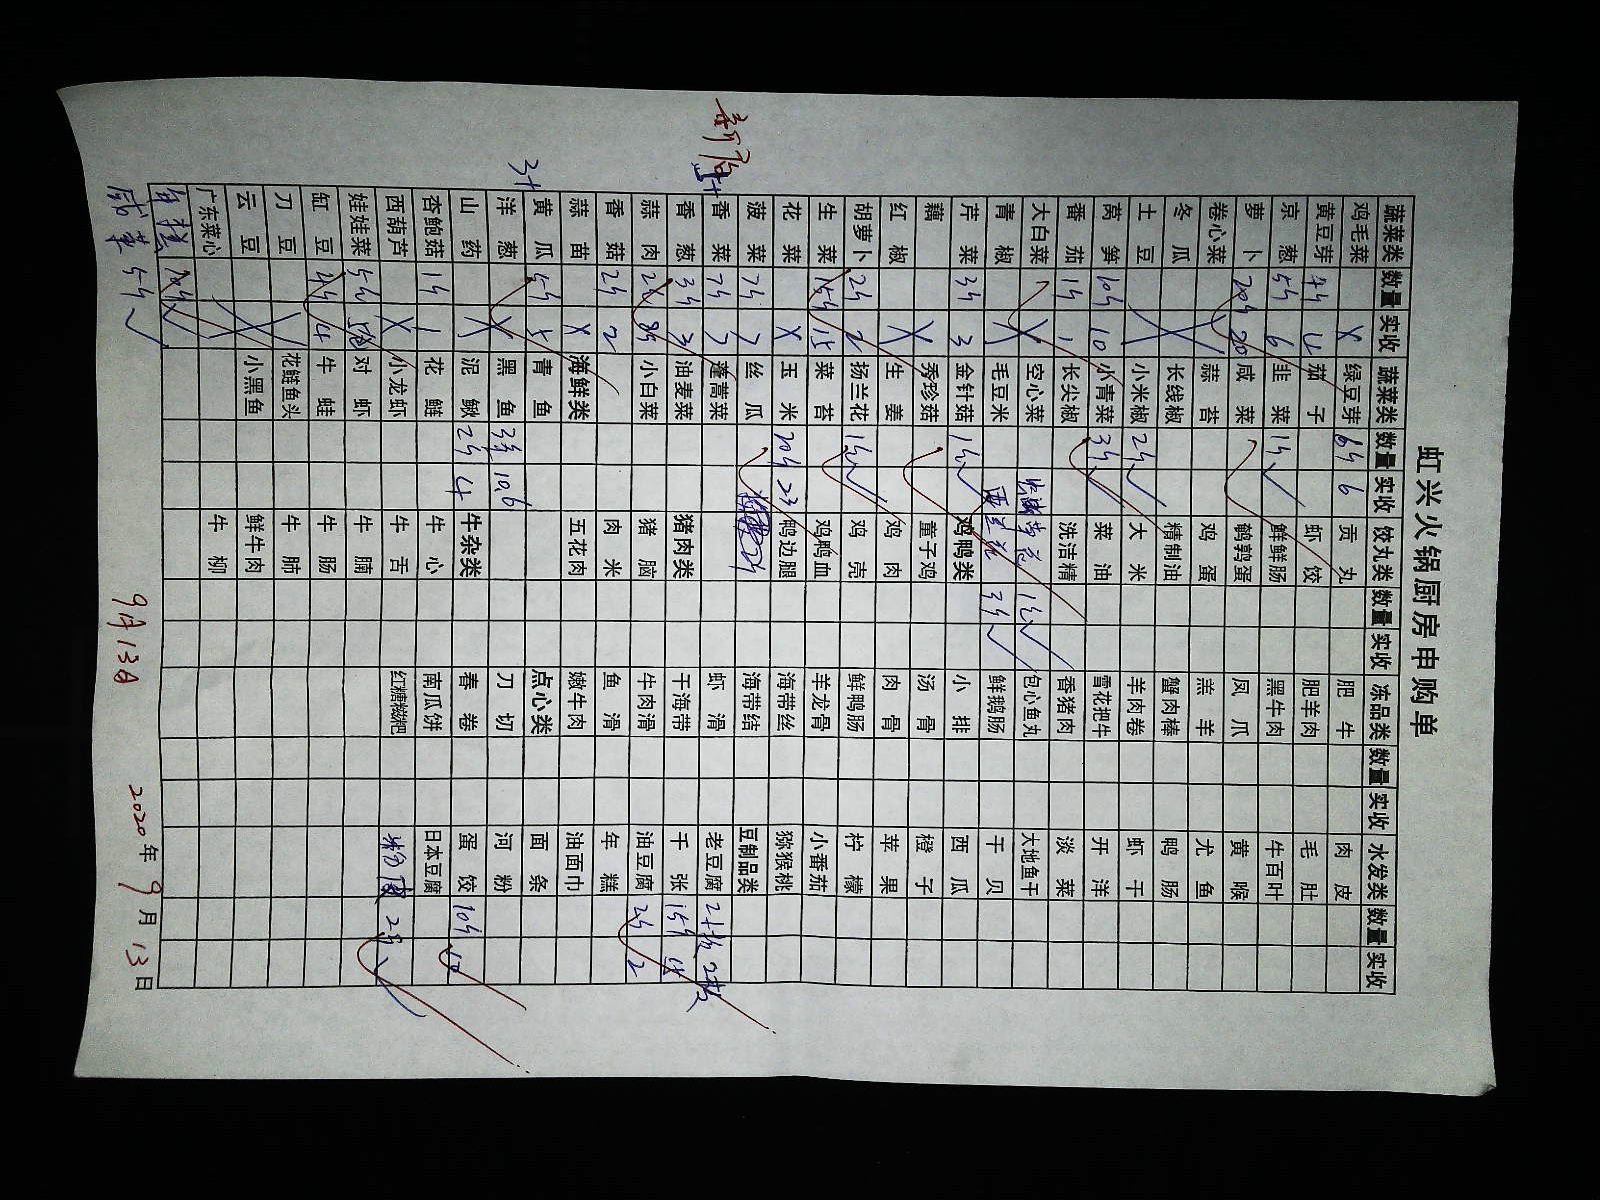 虹兴火锅厨房申购单
蔬菜类 数量 实收 蔬菜类 数量 实收 饺丸类 数量 实收 冻品类 数量 实收 水发类 数量 实收
鸡毛菜 X 绿豆芽 6斤 6 贡丸 肥牛 肉皮
黄豆芽 4斤 4 茄子 虾饺 肥羊肉 毛肚
京葱 5斤 6 韭菜 1斤 鲜鲜肠 黑牛肉 牛百叶
萝卜 20斤 20 咸菜 鹌鹑蛋 凤爪 黄喉
卷心菜 蒜苔 鸡蛋 羔羊 尤鱼
冬瓜 长线椒 精制油 蟹肉棒 鸭肠
土豆 小米椒 2斤 大米 羊肉卷 虾干
莴笋 10斤 10 小青菜 3斤 菜油 雪花把牛 开洋
番茄 1斤 1 长尖椒 洗洁精 香猪肉 淡菜
大白菜 X 空心菜 1斤 包心鱼丸 大地鱼干
青椒 毛豆米 西兰花 3斤 鲜鹅肠 干贝
芹菜 3斤 3 金针菇 1斤 鸡鸭类 小排 西瓜
藕 秀珍菇 童子鸡 汤骨 橙子
红椒 X 生姜 鸡肉 肉骨 苹果
胡萝卜 2斤 2 扬兰花 1斤 鸡壳 鲜鸭肠 柠檬
生菜 15斤 15 菜苔 鸡鸭血 羊龙骨 小番茄
花菜 X 玉米 20斤 23 鸭边腿 海带丝 猕猴桃
菠菜 7斤 7 丝瓜 海带结 豆制品类
香菜 7斤 7 蓬蒿菜 虾滑 老豆腐 2板 2板
香葱 3斤 3 油麦菜 猪肉类 干海带 千张
蒜肉 小白菜 猪脑 牛肉滑 油豆腐 2斤 2
香菇 2斤 2 肉米 鱼滑 年糕
蒜苗 X 海鲜类 五花肉 嫩牛肉 油面巾
黄瓜 5斤 青鱼 点心类 面条
洋葱 X 黑鱼 3条 10.6 刀切 河粉
山药 X 泥鳅 2斤 4 牛杂类 春卷 蛋饺 10斤 10
杏鲍菇 1斤 1 花鲢 牛心 南瓜饼 日本豆腐
西葫芦 X 小龙虾 牛舌 红糖糍粑 2斤
娃娃菜 5斤 对虾 牛腩
缸豆 4斤 4 牛蛙 牛肠
刀豆 花鲢鱼头 牛肺
云豆 小黑鱼 鲜牛肉
广东菜心 牛柳
咸菜 5斤
9月13日
2020年9月13日